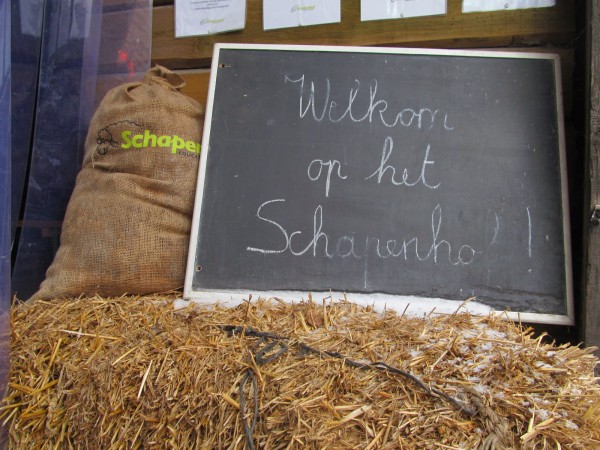 Schapen
Welkom
op het
Schapenho !